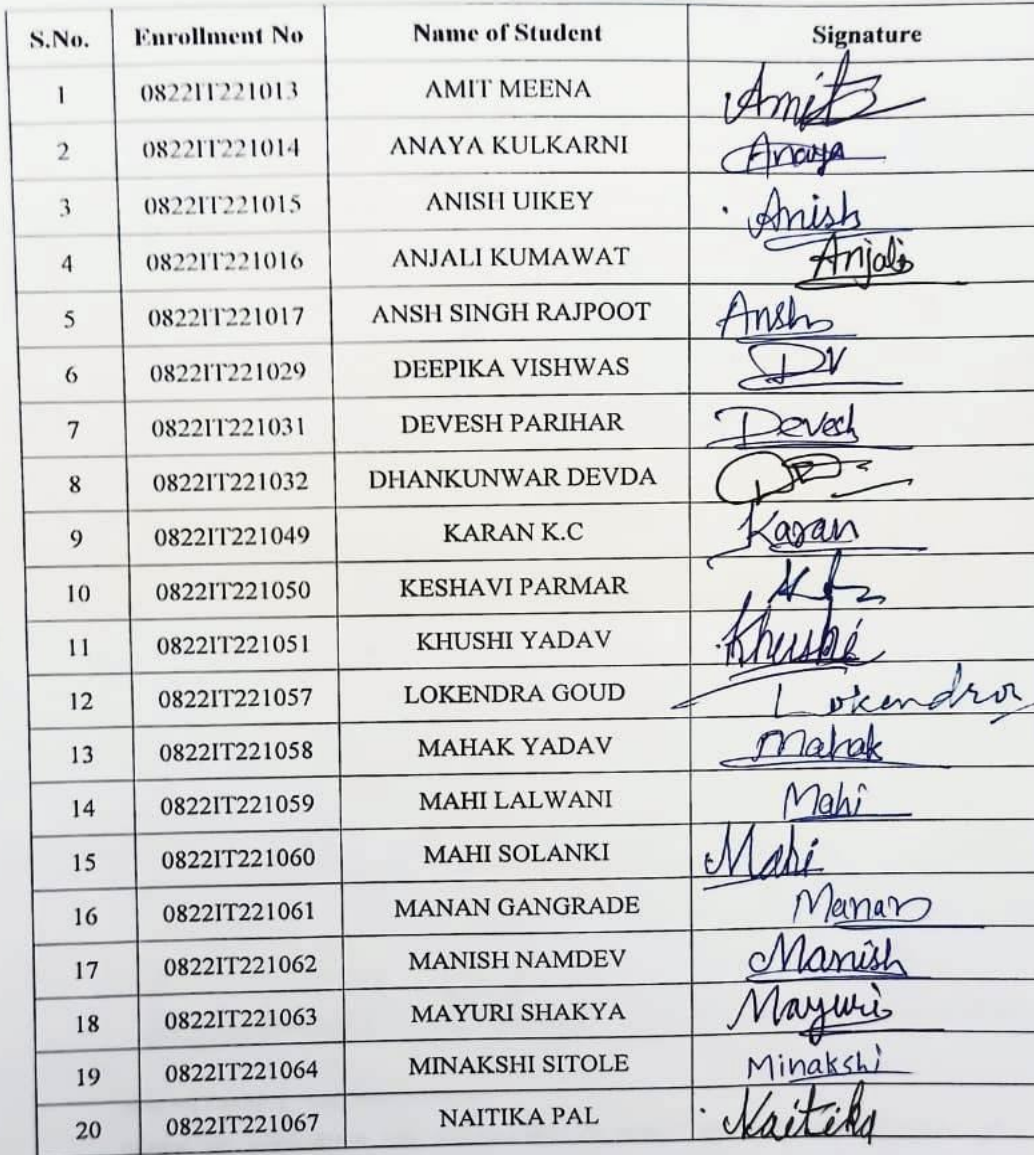 S.No. Enrollment No Name of Student Signature
1 0822IT221013 AMIT MEENA Amit
2 0822IT221014 ANAYA KULKARNI Anaya
3 0822IT221015 ANISH UIKEY Anish
4 0822IT221016 ANJALI KUMAWAT Anjali
5 0822IT221017 ANSH SINGH RAJPOOT Ansh
6 0822IT221029 DEEPIKA VISHWAS DV
7 0822IT221031 DEVESH PARIHAR Devesh
8 0822IT221032 DHANKUNWAR DEVDA
9 0822IT221049 KARAN K.C Karan
10 0822IT221050 KESHAVI PARMAR
11 0822IT221051 KHUSHI YADAV Khushi
12 0822IT221057 LOKENDRA GOUD Lokendra
13 0822IT221058 MAHAK YADAV Mahak
14 0822IT221059 MAHI LALWANI Mahi
15 0822IT221060 MAHI SOLANKI Mahi
16 0822IT221061 MANAN GANGRADE Manan
17 0822IT221062 MANISH NAMDEV Manish
18 0822IT221063 MAYURI SHAKYA Mayuri
19 0822IT221064 MINAKSHI SITOLE Minakshi
20 0822IT221067 NAITIKA PAL Naitika